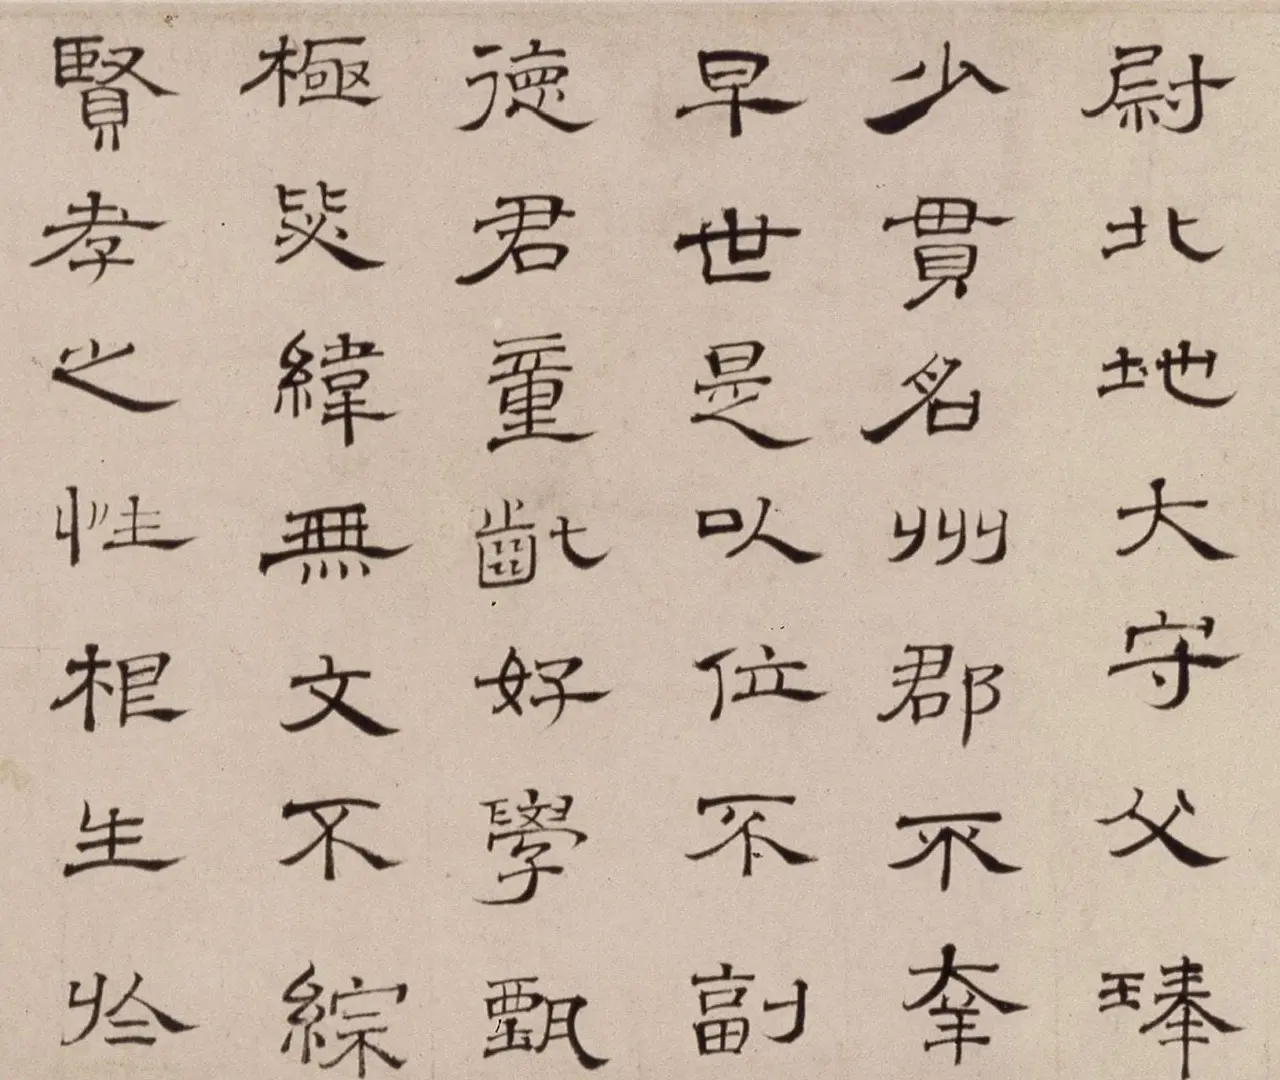 尉北地大守父琫
少貫名州郡不幸
早世是以位不副
德君童齔好學甄
極毖緯無文不綜
賢孝之性根生於